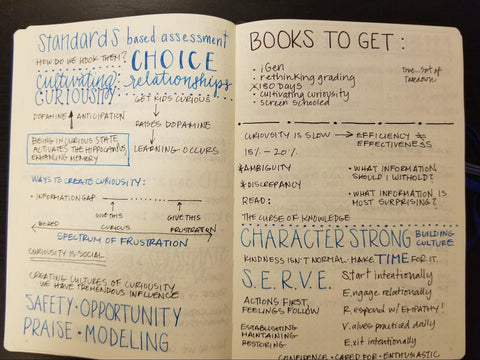 Standards based assessment
HOW DO WE HOOK THEM? CHOICE
cultivating relationships
CURIOUSITY:
GET KIDS CURIOUS
DOPAMINE ANTICIPATION
RAISES DOPAMINE
BEING IN CURIOUS STATE
ACTIVATES THE HIPPOCAMPUS,
ENHANCING MEMORY
LEARNING OCCURS
WAYS TO CREATE CURIOUSITY:
• INFORMATION GAP
GIVE THIS GIVE THIS
BORED CURIOUS FRUSTRATION
SPECTRUM OF FRUSTRATION
CURIOUSITY IS SOCIAL
CREATING CULTURES OF CURIOUSITY
WE HAVE TREMENDOUS INFLUENCE
SAFETY • OPPORTUNITY
PRAISE • MODELING
BOOKS TO GET:
• iGen
• rethinking grading
180 DAYS
• cultivating curiousity
• screen schooled
CURIOUSITY IS SLOW → EFFICIENCY ≠
EFFECTIVENESS
15% - 20%
*AMBIGUITY
*DISCREPANCY
• WHAT INFORMATION
SHOULD I WITHOLD?
READ:
• WHAT INFORMATION IS
MOST SURPRISING?
THE CURSE OF KNOWLEDGE
CHARACTER STRONG BUILDING
CULTURE
KINDNESS ISN'T NORMAL. MAKE TIME FOR IT.
S.E.R.V.E.
Start intentionally
ACTIONS FIRST,
FEELINGS FOLLOW
Engage relationally
Respond w/ EMPATHY!
ESTABLISHING
MAINTAINING
RESTORING
Values practiced daily
Exit intentionally
CONFIDENCE • CARED FOR • ENTHUSIASTIC